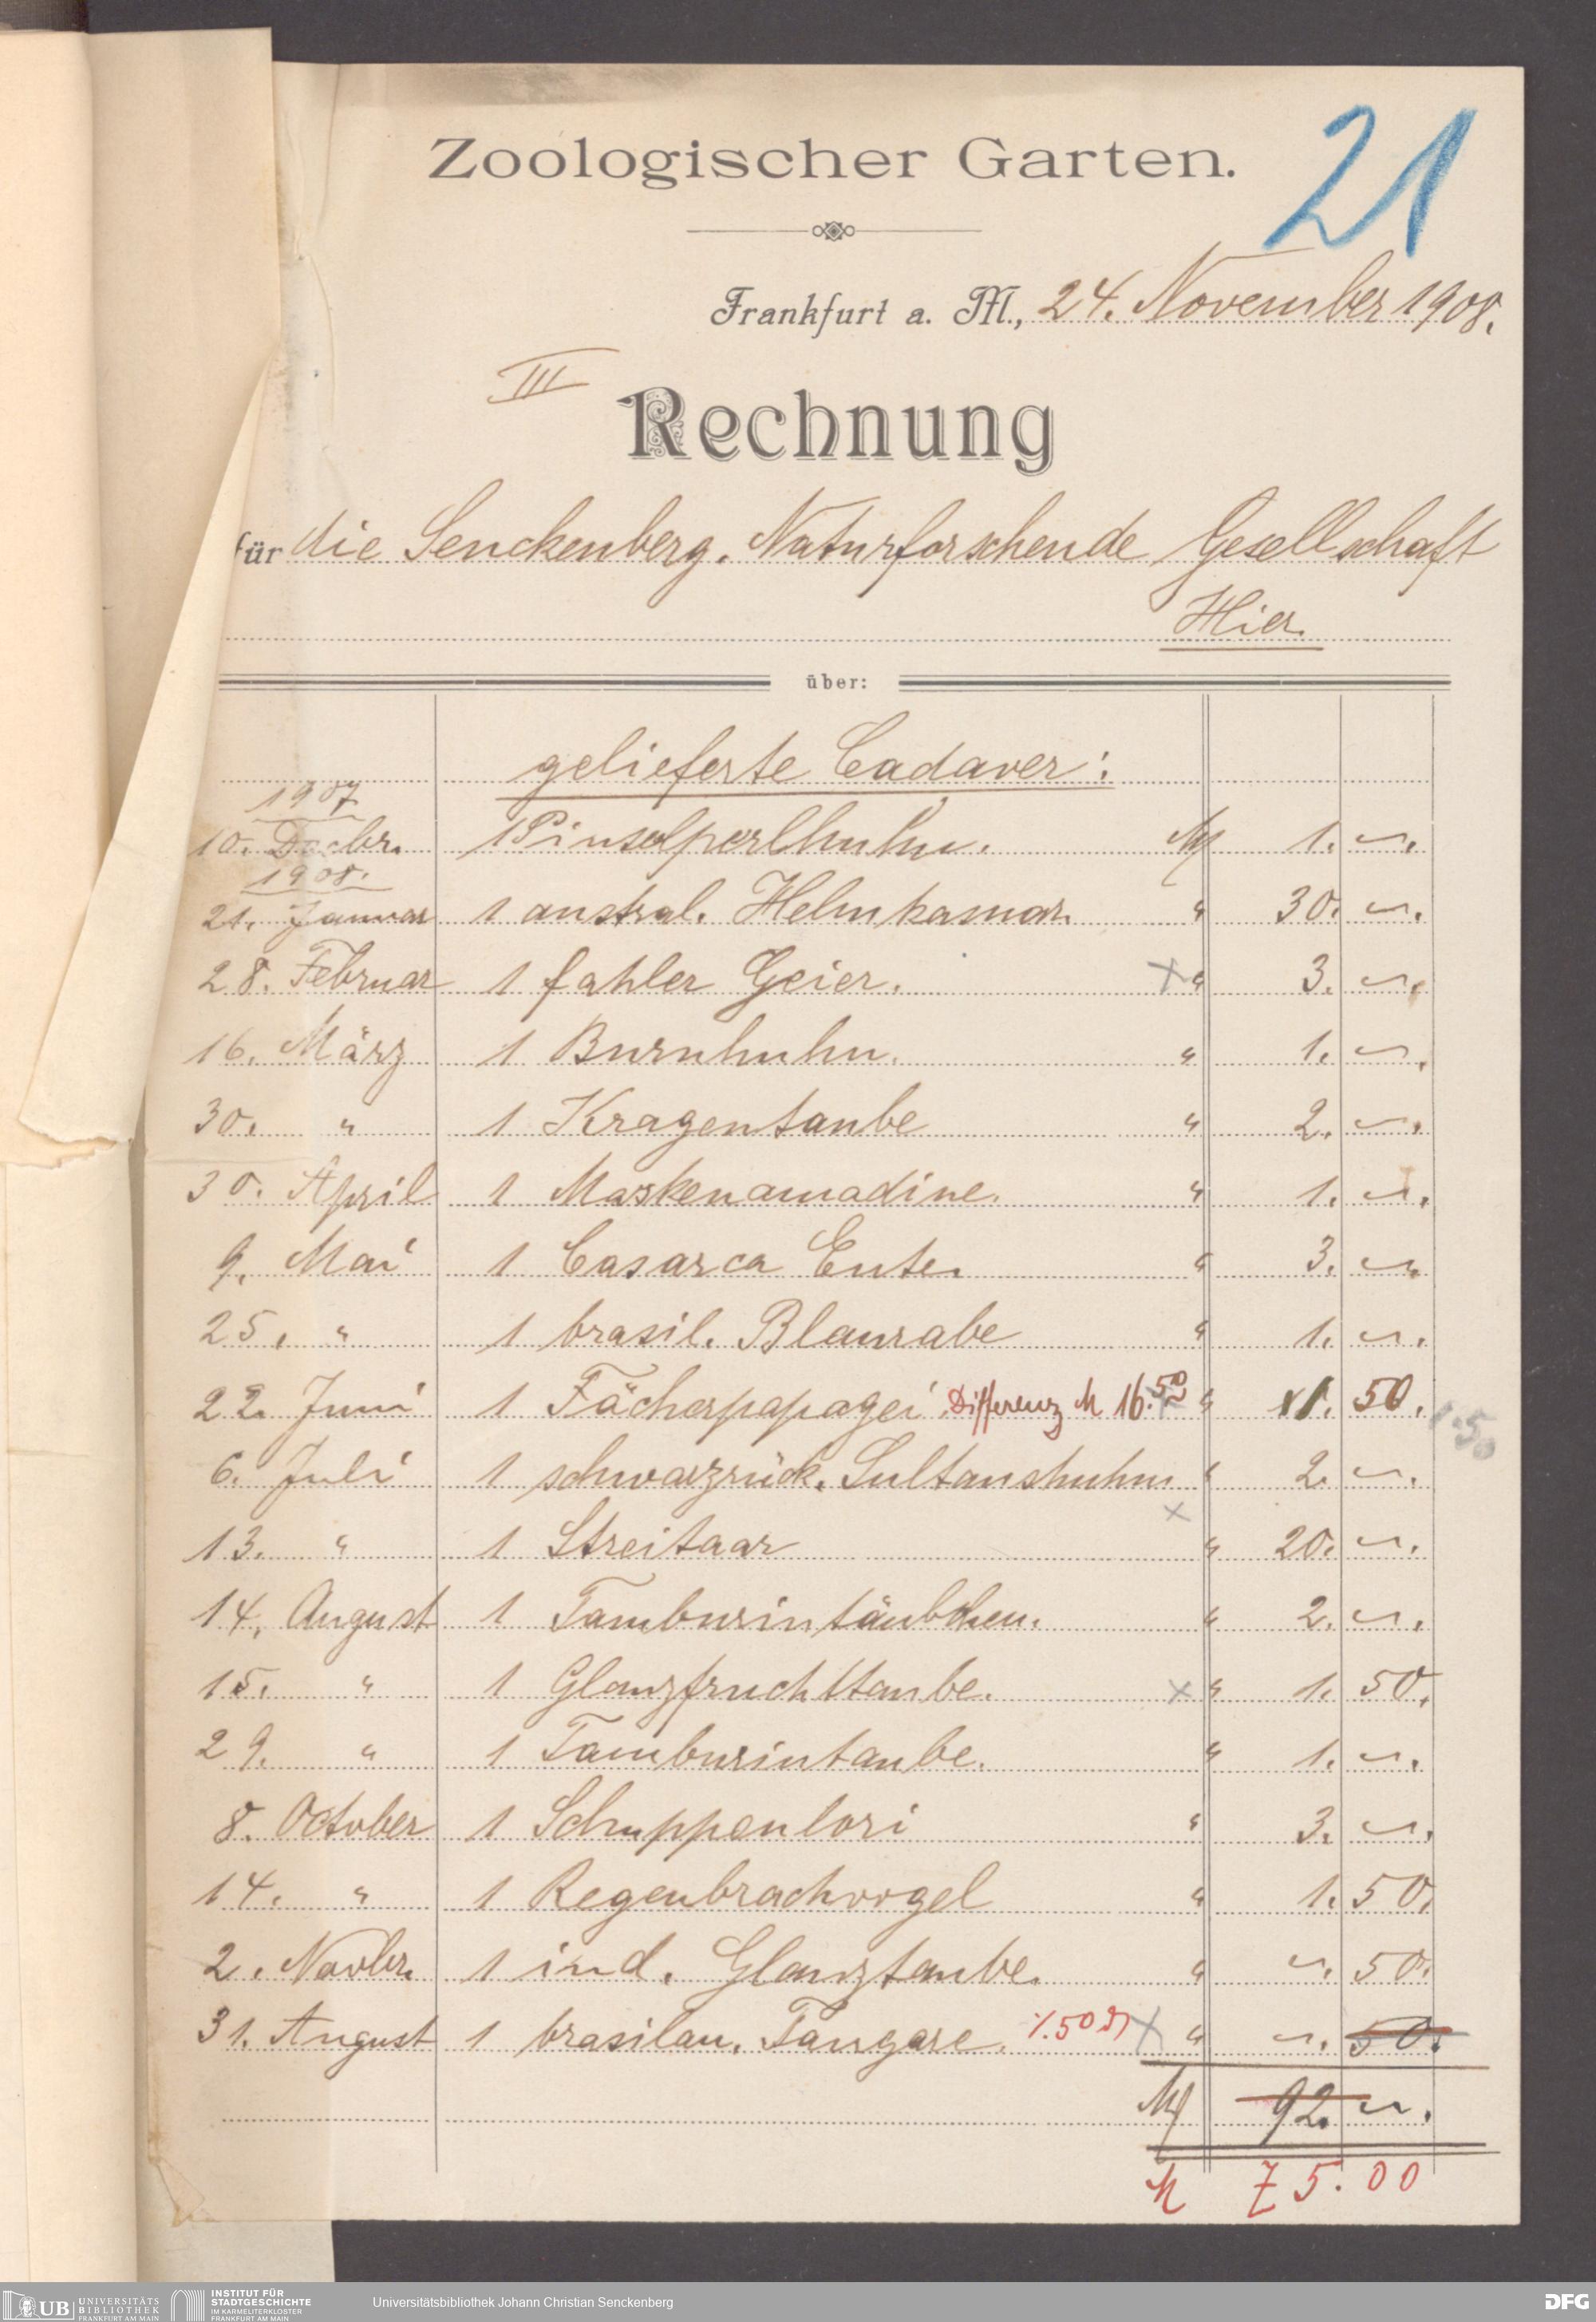 21
Zoologischer Garten.
Frankfurt a. M., 24. November 1908.
III
Rechnung
für die Senckenberg. Naturforschende Gesellschaft
Hier.
über:
gelieferte Cadaver:
1907
10. Decbr. 1 Pinselperlhuhn. M 1. —.
1908.
21. Januar 1 austral. Helmkasuar. " 30. —.
28. Februar 1 fahler Geier. × " 3. —.
16. März 1 Burnhuhn. " 1. —.
30. " 1 Kragentaube " 2. —.
30. April 1 Maskenamadine. " 1. —.
9. Mai 1 Casarca Ente. " 3. —.
25. " 1 brasil. Blaurabe " 1. —.
22. Juni 1 Fächerpapagei Differenz M 16.50 " 50. 1.50
6. Juli 1 schwarzrück. Sultanshuhn " 2. —.
13. " 1 Streitaar × " 20. —.
14. August 1 Tamburintäubchen. " 2. —.
15. " 1 Glanzfruchttaube. × " 1. 50.
29. " 1 Tamburintaube. " 1. —.
8. October 1 Schuppenlori " 3. —.
14. " 1 Regenbrachvogel " 1. 50.
2. Novbr. 1 ind. Glanztaube. " —. 50.
31. August 1 brasilan. Tangare. ./. 50 ₰ × " —. 50.
M 92. —.
M 75.00
UB UNIVERSITÄTS
BIBLIOTHEK
FRANKFURT AM MAIN
INSTITUT FÜR
STADTGESCHICHTE
IM KARMELITERKLOSTER
FRANKFURT AM MAIN
Universitätsbibliothek Johann Christian Senckenberg
DFG